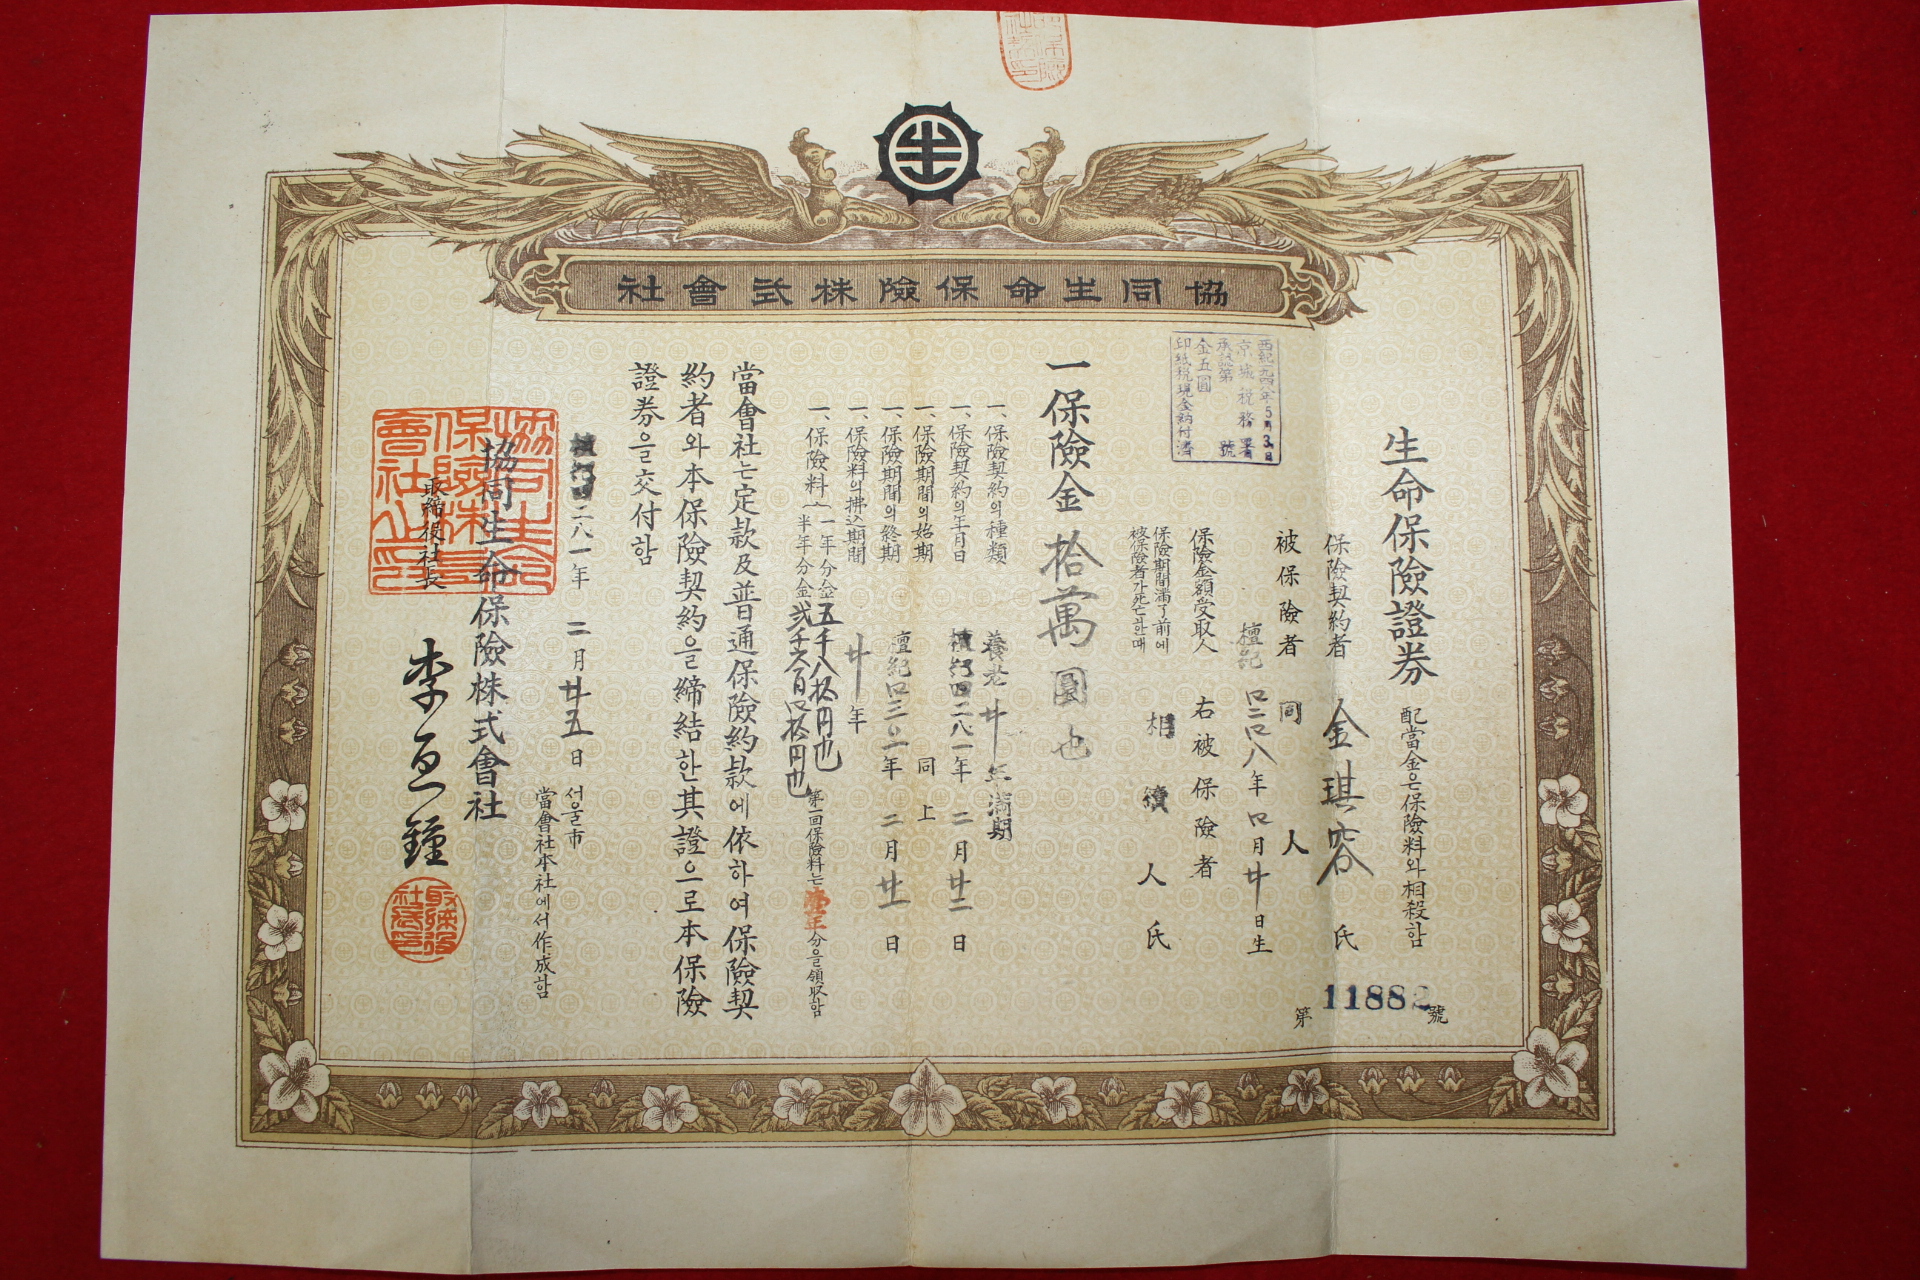 協同生命保險株式會社
生命保險證券
配當金은保險料와相殺함
第11882號
保險契約者 金琪容 氏
被保險者 同人
檀紀四二二八年四月廿日生
保險金額受取人 右被保險者
保險期間滿了前에
被保險者가死亡한때
相續人 氏
西紀一九四八年5月3日
京城稅務署
承認第 號
金五圓
印紙稅現金納付濟
一保險金拾萬圓也
一、保險契約의種類 養老廿年滿期
一、保險契約의年月日 檀紀四二八一年二月廿二日
一、保險期間의始期 同上
一、保險期間의終期 檀紀四三〇一年二月廿一日
一、保險料의拂込期間 廿年
一、保險料 一年分金五千八拾円也
半年分金貳千六百四拾円也
第一回保險料는壹年分을領収함
當會社는定款及普通保險約款에依하여保險契
約者와本保險契約을締結한其證으로本保險
證券을交付함
檀紀四二八一年 二月廿五日 서울市
當會社本社에서作成함
協同生命保險株式會社
取締役社長 李亘鍾